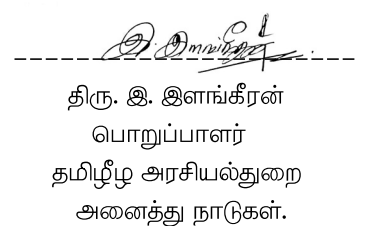 இ. இளங்கீரன்
திரு. இ. இளங்கீரன்
பொறுப்பாளர்
தமிழீழ அரசியல்துறை
அனைத்து நாடுகள்.